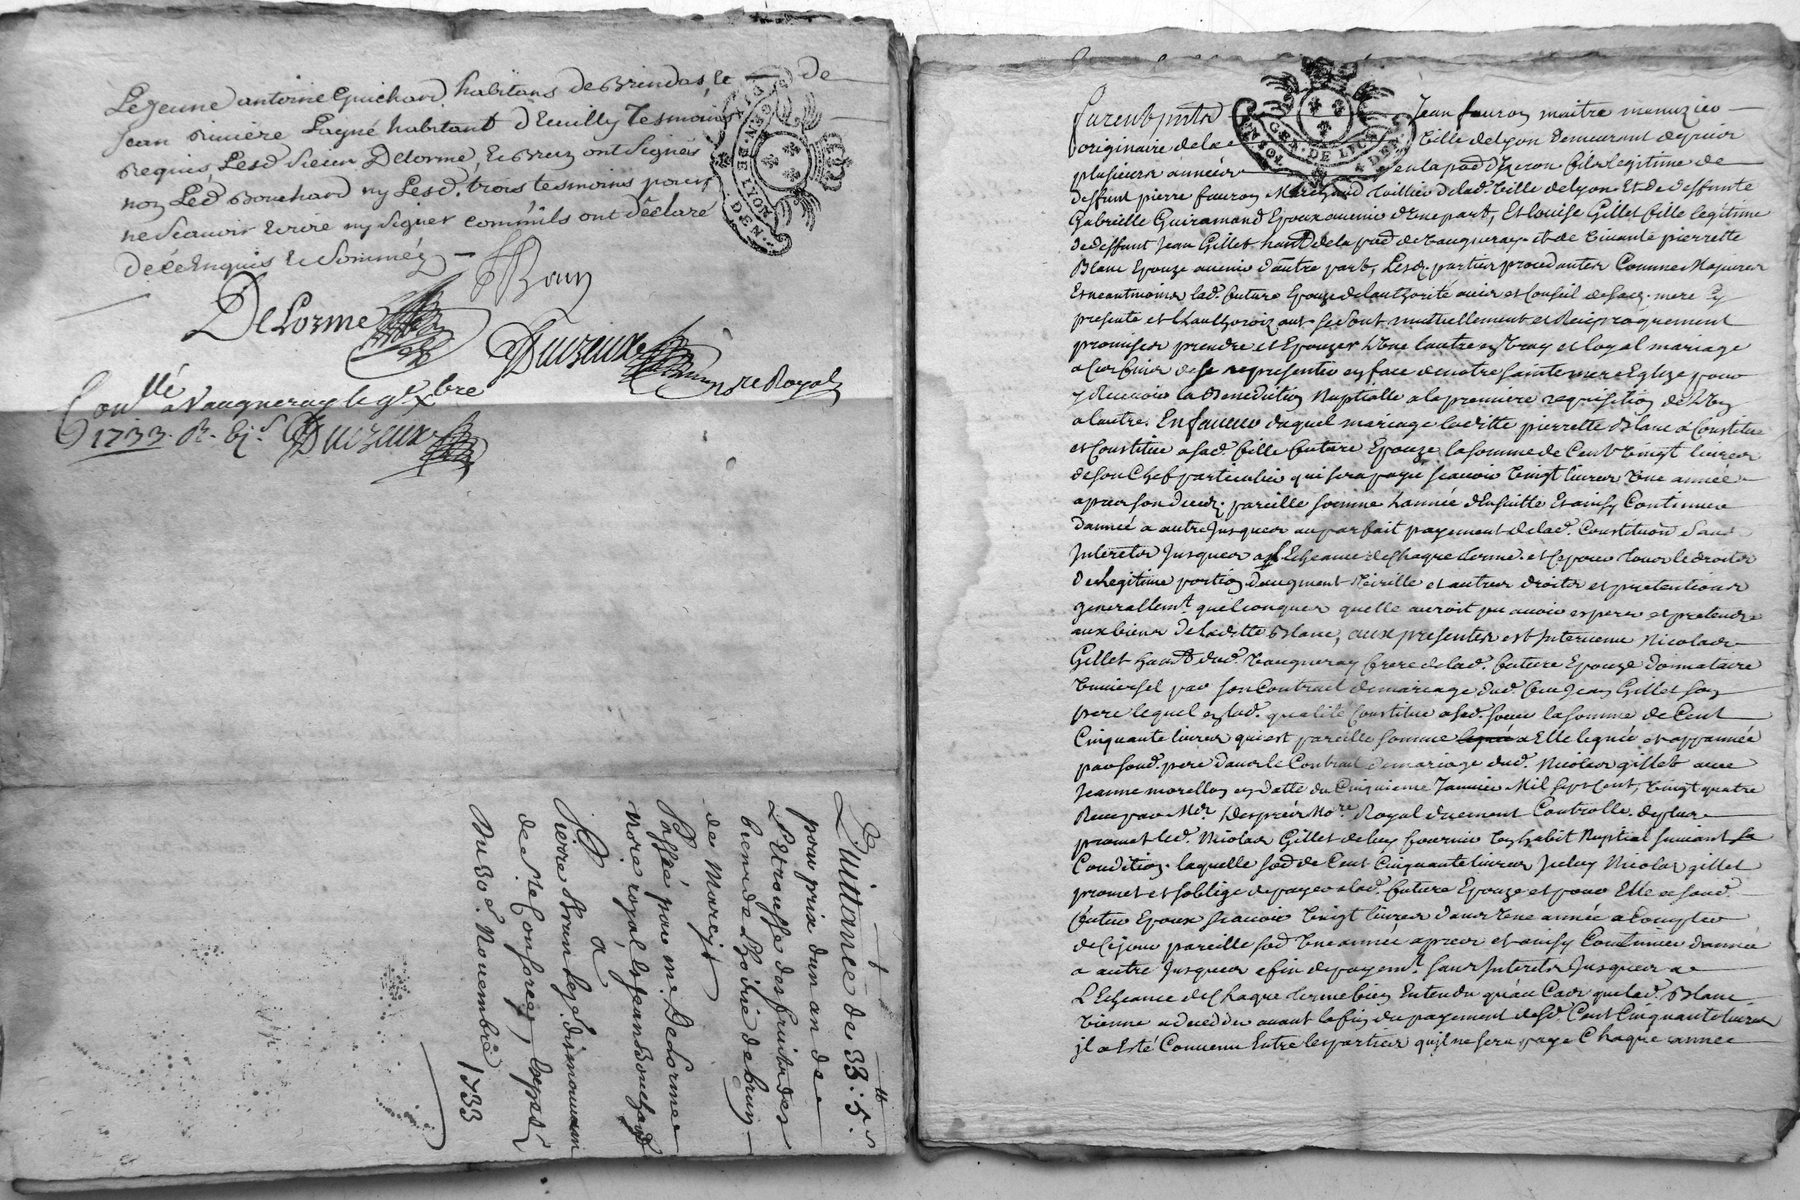 Lejeune antoine Guichard habitans de Brindas, et de
Jean Riviere Layné habitant d'Euilly Tesmoins
Requis, Lesd. Sieur Delorme, & Brun ont Signés
non Led Bouchard ny Lesd. trois tesmoins pour
ne Scauoir Ecrire ny Signer comm'ils ont déclaré
de ce Enquis & Sommés
Brun
DeLorme
Duizeux
nore Royal
Conllé a Vaugneray le 9e Xbre
1733. R. Duizeux
GEN. DE LYON
DEN.
Quittance de 33lt 5s
pour prix dun an de
L'Etrousse des fruits des
biens de
de Marcy
Passée par me Delorme
Nore royal & Jean Bouchard
A
Pierre Brun
de St Consorce,
Du 30e. Nouembre 1733
GEN. DE LION
DEN
Furent pnts Jean fauron maitre menuzier
originaire de la Ville de Lyon demeurant depuis
plusieurs années en la psse d'Izeron fils legitime de
deffunt pierre fauron Marchand de lad. Ville de Lyon Et de deffunte
Gabrielle Guiramand Epoux auenir d'Une part, Et Louise Gillet fille legitime
de deffunt Jean Gillet hant de la psse de Vaugneray et de Viuante pierrette
Blanc Epouze auenir d'autre part, Lesq. parties procedantes Comme Majeures
Et neantmoins lad. future Epouze de lauthorité auis et Conseil de sad. mere Cy
presente et Lhauthorizant se sont mutuellement et Reciproquement
promises prendre et Epouzer L'Une lautre en Vray et loyal mariage
a Ces fins de se representer en face de notre Sainte mere Eglize pour
y Receuoir la Benediction Nuptialle a la premiere requisition de L'Un
a lautre. En faueur duquel mariage laditte pierrette Blanc a Constitué
et Constitue a sad. fille future Epouze la somme de Cent Vingt liures
de son Chef particulier qui sera payé scauoir Vingt liures Une année
apres son deces pareille somme L'année d'Ensuitte Et ainsy Continuer
d'année a autre Jusques au parfait payement de lad. Constitution Sans
Interets Jusques a L'Echeance de Chaque terme et Ce pour tous les droits
de Legitime portion d'augment Vireille et autres droits et pretentions
generallemt quelconques quelle auroit pu auoir esperer et pretendre
aux biens de laditte Blanc, aux presentes est Interuenu Nicolas
Gillet hant dud. Vaugneray frere de lad. future Epouze donnataire
Vniuersel par son Contract de mariage dud. feu Jean Gillet son
pere lequel en lad. qualité Constitue a sad. soeur la somme de Cent
Cinquante liures qui est pareille somme a Elle leguée et appannée
par sond. pere dans le Contract de mariage dud. Nicolas gillet auec
Jeanne morellon en datte du Cinquieme Januier Mil sept Cent, Vingt quatre
Receu par Me Despres Nore Royal duement Controllé. de plus
promet led. Nicolas Gillet de luy fournir Un habit Nuptial suiuant sa
Condition. laquelle sod de Cent Cinquante liures Jceluy Nicolas gillet
promet et soblige de payer a lad. future Epouze et pour Elle a sond.
futur Epoux scauoir Vingt liures dans Une année a Compter
de Ce jour pareille sod Une année apres et ainsy Continuer d'année
a autre Jusques a fin de payemt sans Interets Jusques a
L'Echeance de Chaque terme bien Entendu qu'au Cas que lad. Blanc
Vienne a deceder auant la fin du payement desd. Cent Cinquante liures
il a Esté Conuenu Entre les parties qu'il ne sera payé Chaque année